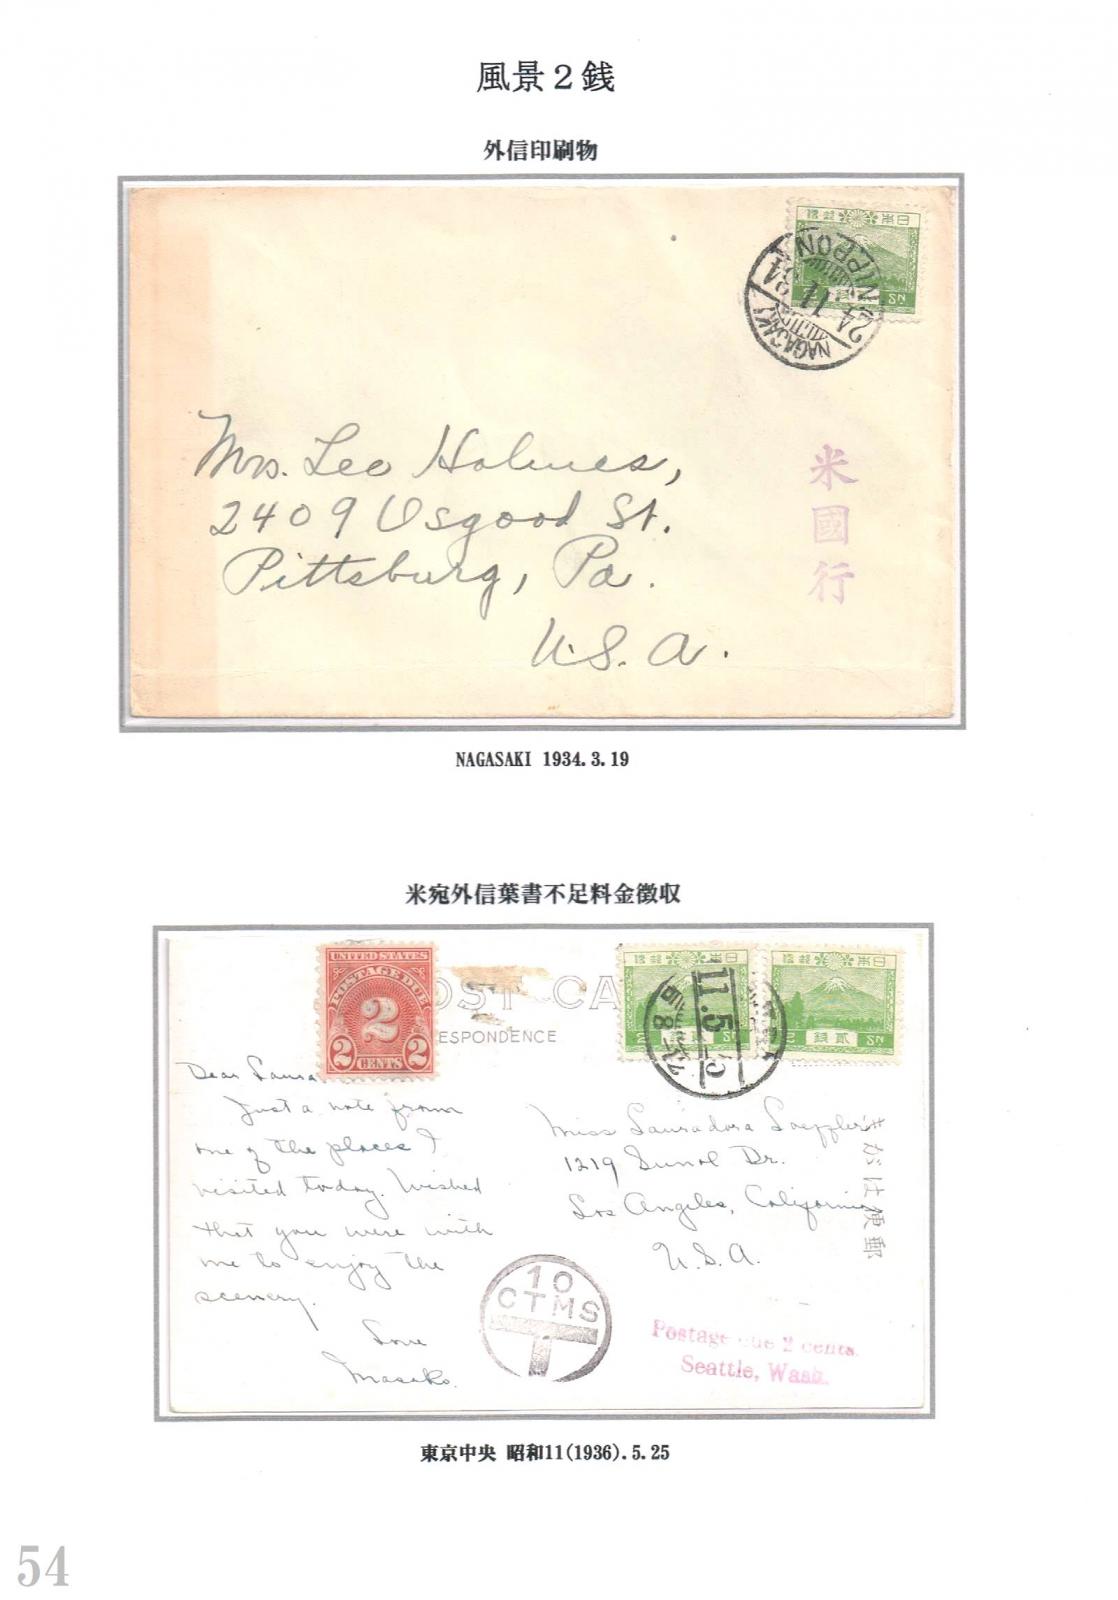 風景２銭
外信印刷物
日本郵便
NAGASAKI
NIPPON
米國行
Mrs. Leo Holmes,
2409 Osgood St.
Pittsburg, Pa.
U.S.A.
NAGASAKI 1934.3.19
米宛外信葉書不足料金徴収
UNITED STATES
POSTAGE DUE
2
2 CENTS 2
POST CA
ESPONDENCE
日本郵便
日本郵便
貳錢
11.5
Dear Laura
Just a note from
one of the places I
visited today. Wished
that you were with
me to enjoy the
scenery.
Love
Masako.
Miss
1219 Sunol Dr.
Los Angeles, California
U.S.A.
きがは便郵
10
CTMS
T
Postage due 2 cents.
Seattle, Wash.
東京中央 昭和11(1936).5.25
54